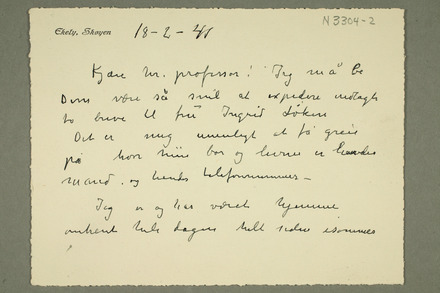 N 3304-2
Ekely, Skøyen 18-2-41
Kjære hr. professor! Jeg må be
Dem være så snil at expedere
to breve til fru Ingrid
Det er mig umuligt at få greie
på hvor hun bor og hendes
mand. og hendes telefonnummer –
Jeg er og har været hjemme
omtrent hele dagen helt siden isommer